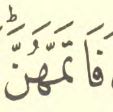 فَاَتَمَّهُنَّؕ